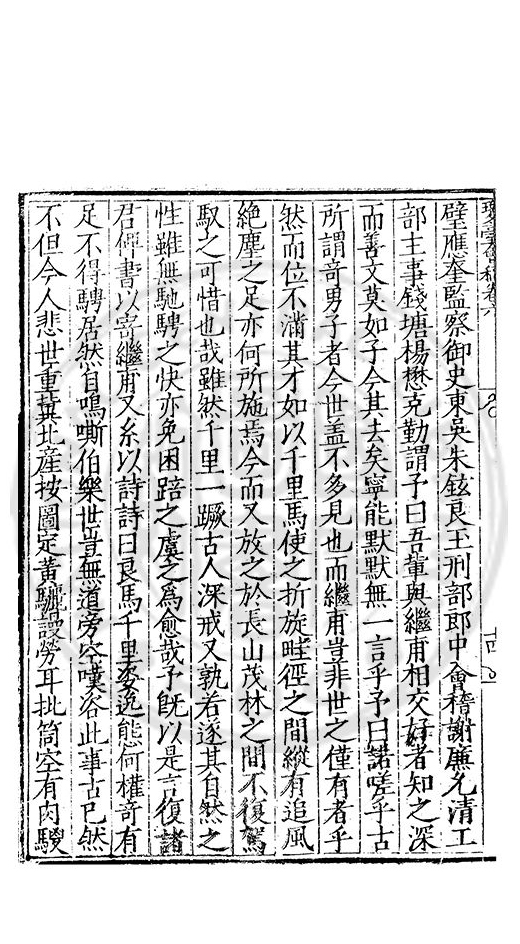 瓊臺會稿卷六
十四
璧應奎監察御史東吳朱鉉良玉刑部郎中會稽謝廉允清工
部主事錢塘楊懋克勤謂予曰吾輩與繼甫相交好者知之深
而善文莫如子今其去矣寧能默默無一言乎予曰諾嗟乎古
所謂竒男子者今世盖不多見也而繼甫豈非世之僅有者乎
然而位不滿其才如以千里馬使之折旋畦徑之間縱有追風
絶塵之足亦何所施焉今而又放之於長山茂林之間不復駕
馭之可惜也哉雖然千里一蹶古人深戒又孰若遂其自然之
性雖無馳騁之快亦免困踣之虞之爲愈哉予旣以是言復諸
君俾書以寄繼甫又系以詩詩曰良馬千里姿逸態何權竒有
足不得騁居然自鳴嘶伯樂世豈無道旁空嘆咨此事古已然
不但今人悲世重冀北産按圖定黃驪謾勞耳批筒空有肉騣